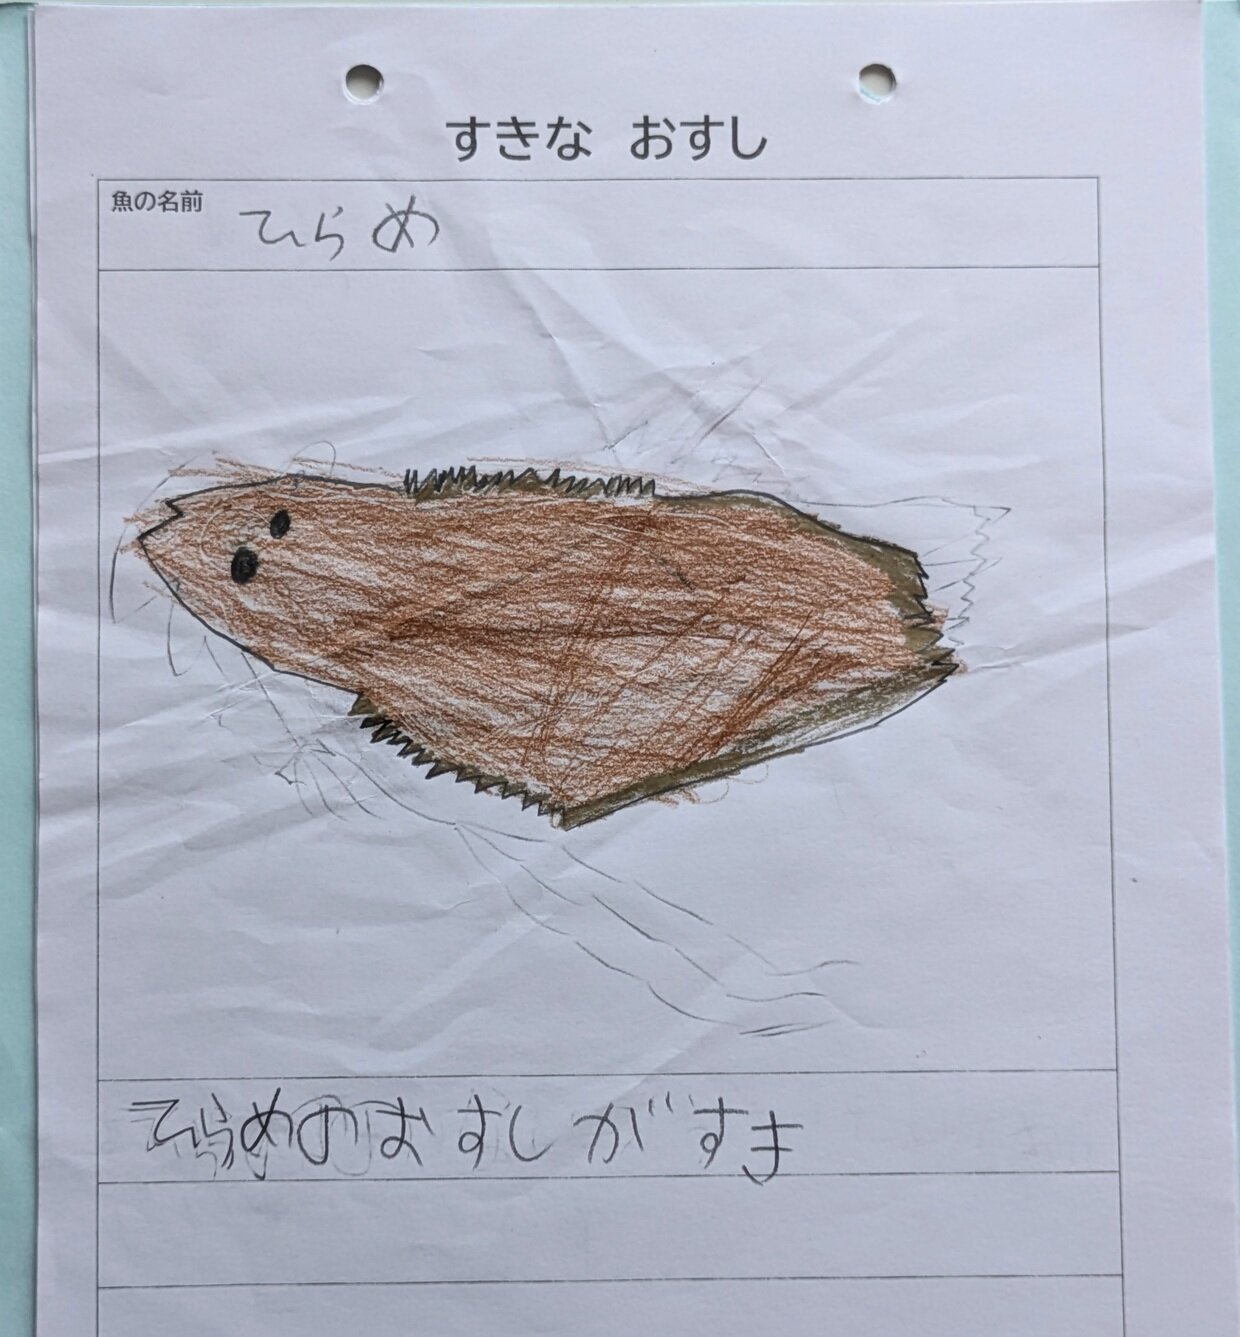 すきな おすし
魚の名前
ひらめ
ひらめのおすしがすき